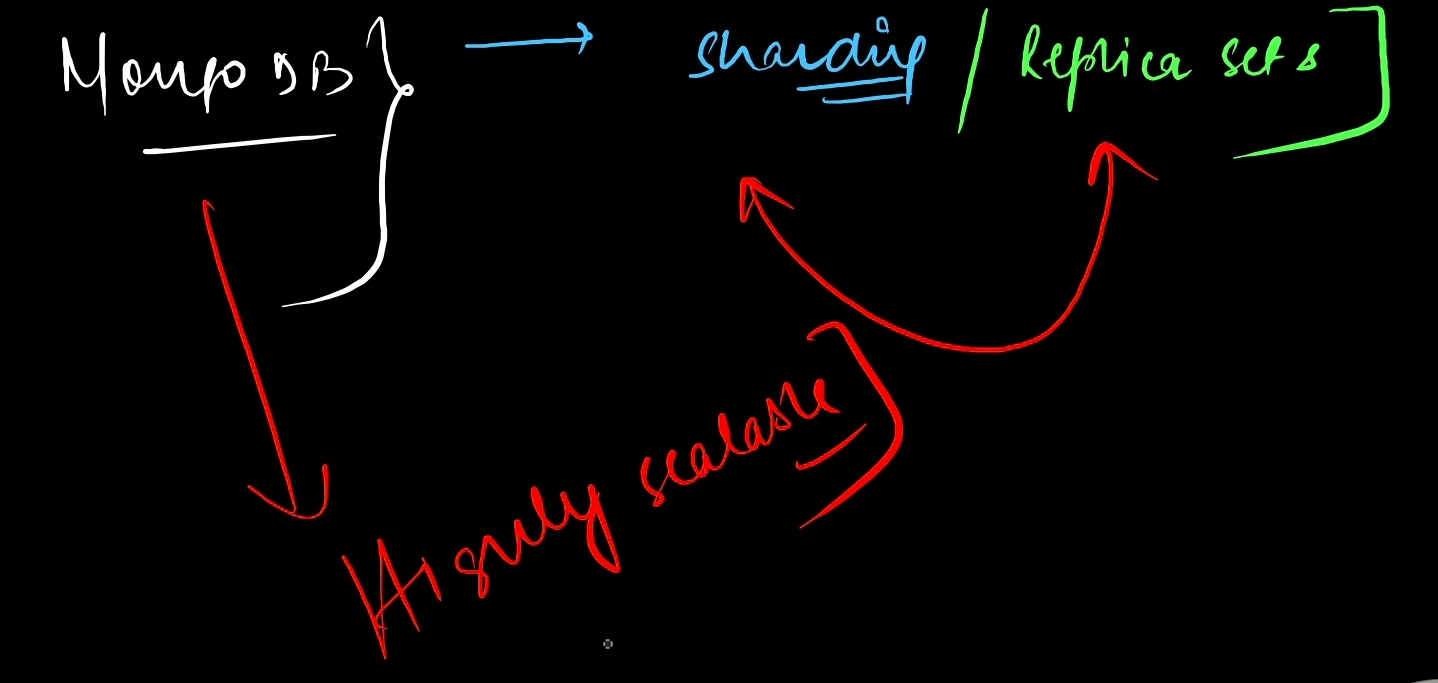 MongoDB } → sharding / Replica sets ]
Highly scalable ]